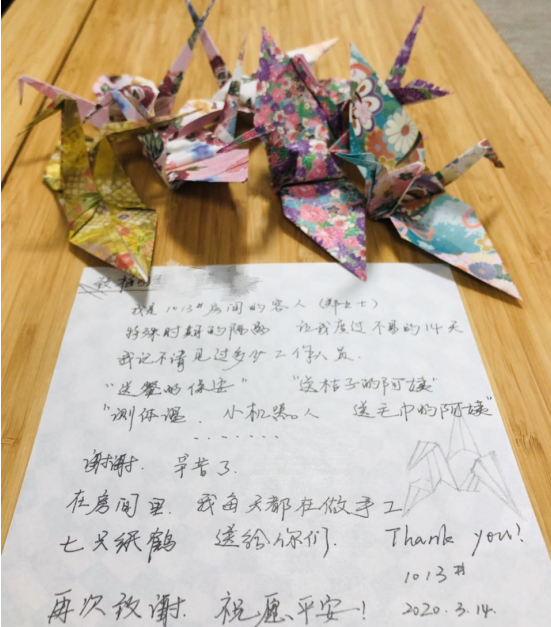 我是1013#房间的客人（郑女士）
特殊时期的隔离 让我度过不易的14天
我记不清见过多少工作人员.
“送餐的保安” “送桔子的阿姨”
“测体温. 小机器人 送毛巾的阿姨”
.......
谢谢. 辛苦了.
在房间里. 我每天都在做手工
七只纸鹤 送给你们. Thank you!
1013#
再次致谢. 祝愿平安! 2020.3.14.